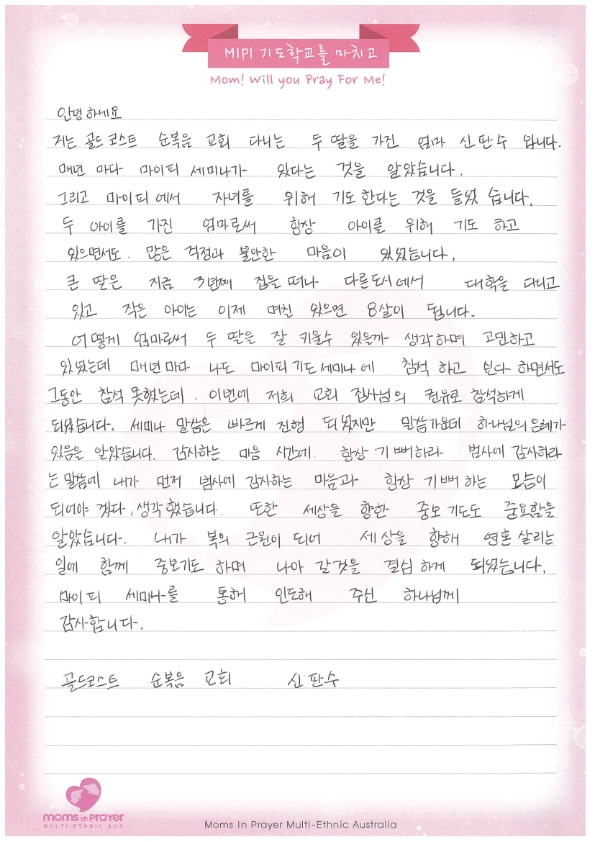 MIPI 기도학교를 마치고
Mom! Will you Pray For Me!
안녕하세요
저는 골드코스트 순복음 교회 다니는 두 딸을 가진 엄마 신판수 입니다.
매년 마다 마이피 세미나가 있다는 것을 알았습니다.
그리고 마이피에서 자녀를 위해 기도한다는 것을 들었습니다.
두 아이를 가진 엄마로써 항상 아이를 위해 기도 하고
있으면서도. 많은 걱정과 불안한 마음이 있었습니다.
큰 딸은 지금 3년째 집을 떠나 다른도시에서 대학을 다니고
있고 작은 아이는 이제 며칟 있으면 8살이 됩니다.
어떻게 엄마로써 두 딸은 잘 키울수 있을까 생각하며 고민하고
있었는데 매년마다 나도 마이피기도 세미나에 참석 하고 싶다 하면서도
그동안 참석 못했는데. 이번에 저희 교회 집사님의 권유로 참석하게
되었습니다. 세미나 말씀은 빠르게 진행 되었지만 말씀가운데 하나님의 은혜가
있음을 알았습니다. 감사하는 마음 시간에. 항상 기뻐하라 범사에 감사하라
는 말씀에 내가 먼저 범사에 감사하는 마음과 항상 기뻐 하는 모습이
되어야 겠다, 생각했습니다. 또한 세상을 향한 중보기도도 중요함을
알았습니다. 내가 복의 근원이 되어 세상을 향해 영혼 살리는
일에 함께 중보기도 하며 나아 갈것을 결심 하게 되었습니다.
마이피 세미나를 통해 인도해 주신 하나님께
감사합니다.
골드코스트 순복음 교회 신판수
moms in prayer
MULTI-ETHNIC AUS
Moms In Prayer Multi-Ethnic Australia